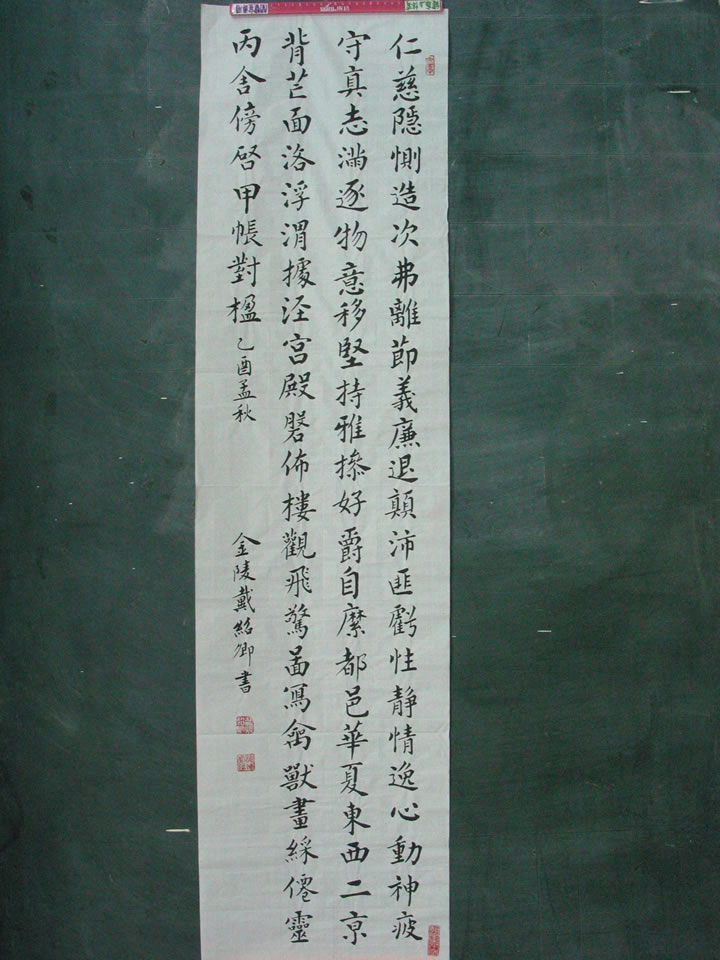 仁慈隱惻造次弗離節義廉退顛沛匪虧性静情逸心動神疲
守真志滿逐物意移堅持雅操好爵自縻都邑華夏東西二亰
背芒面洛浮渭據涇宮殿磐佈樓觀飛驚啚寫禽獸畫綵僊靈
丙舍傍啓甲帳對楹乙酉孟秋 金陵戴紹卿書